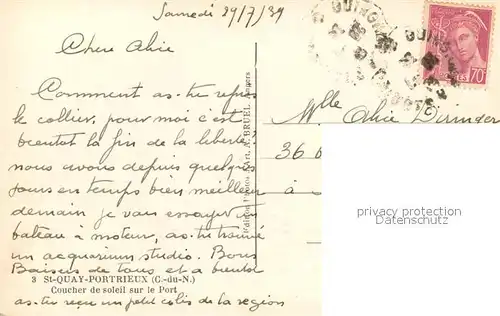 Samedi 29/7/39
Chere Alice
Comment as-tu repris
le collier, pour moi c'est
bientot la fin de la liberté!
nous avons depuis quelques
jours en temps bien meilleur
demain je vais essayer un
bateau à moteur, as-tu trouvé
un acquarium studio. Bons
Baisers de tous et a bientot
3 St-QUAY-PORTRIEUX (C.-du-N.)
Coucher de soleil sur le Port
as-tu reçu un petit colis de la region
A. BRUEL, Angers
Mlle Alice
36
à
70c
©
privacy protection